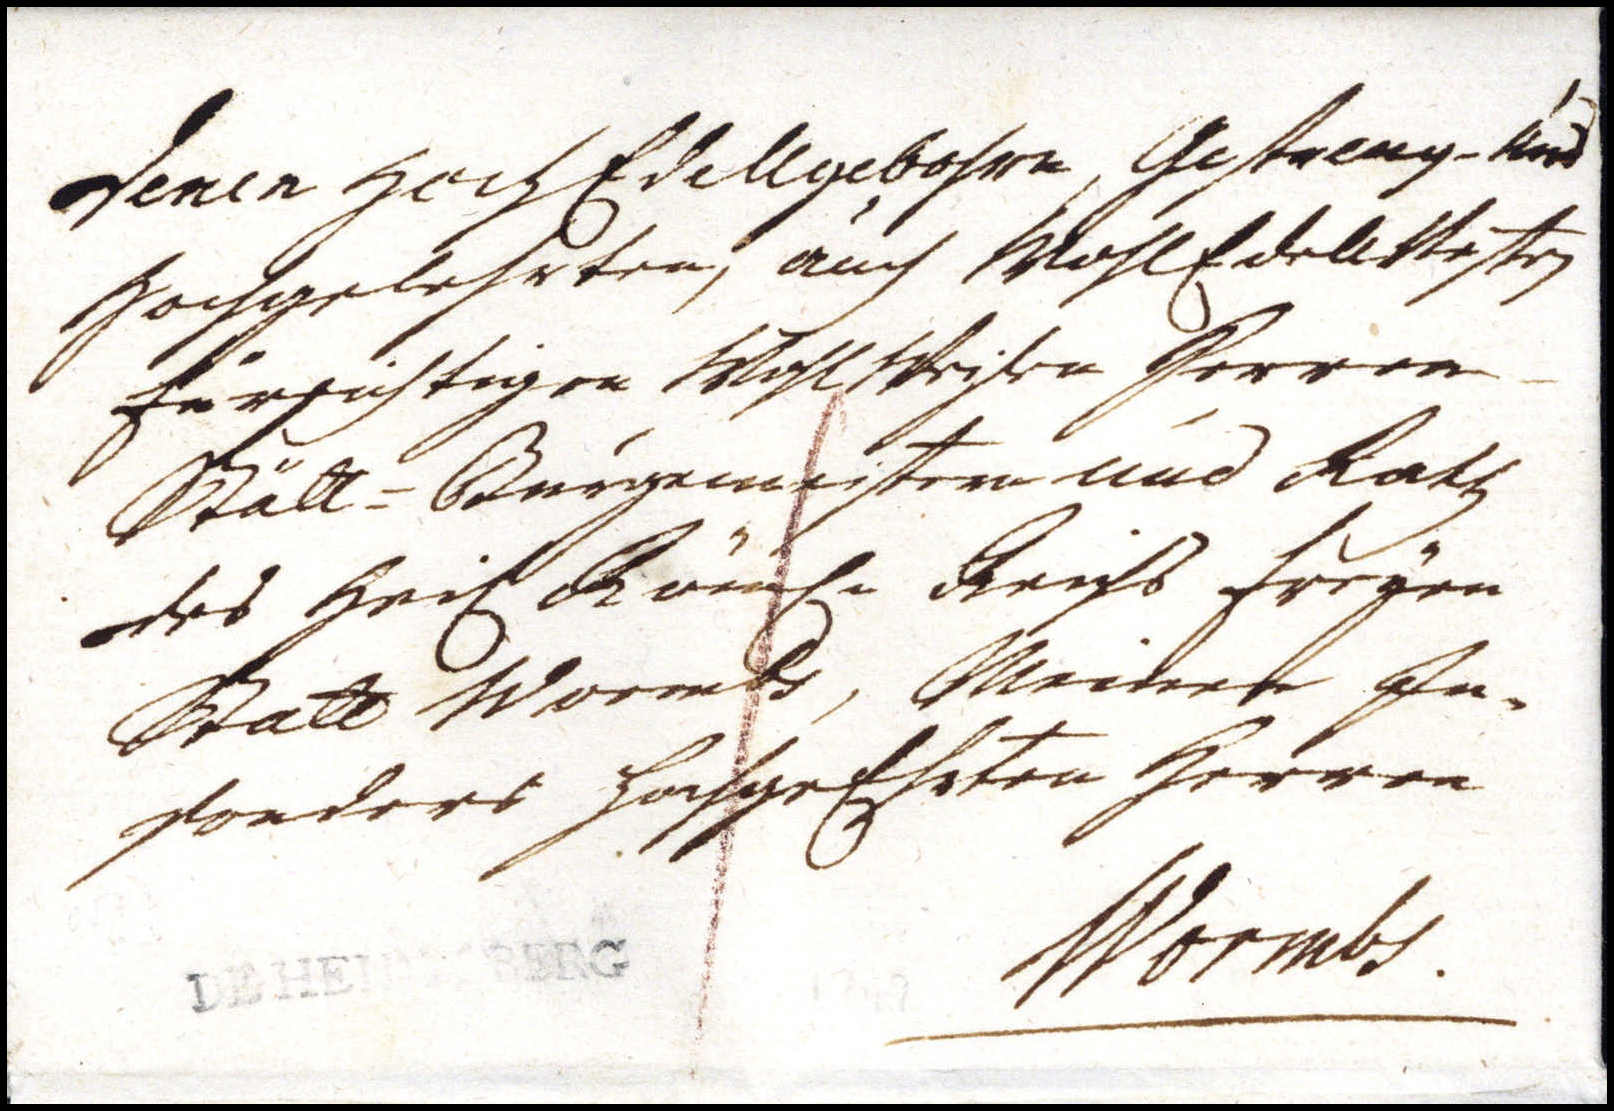 Denen HochEdellgebohrn, Gestreng- und
Hochgelehrten, auch WohlEdell Vesten
fürsichtigen WohlWeisen Herren
Stätt- Burgemeistern und Rath
des Heil Röm: Reichs freyen
Statt Wormbs, Meinen In-
sonders HochgeEhrten Herren
Wormbs.
DE HEIDELBERG